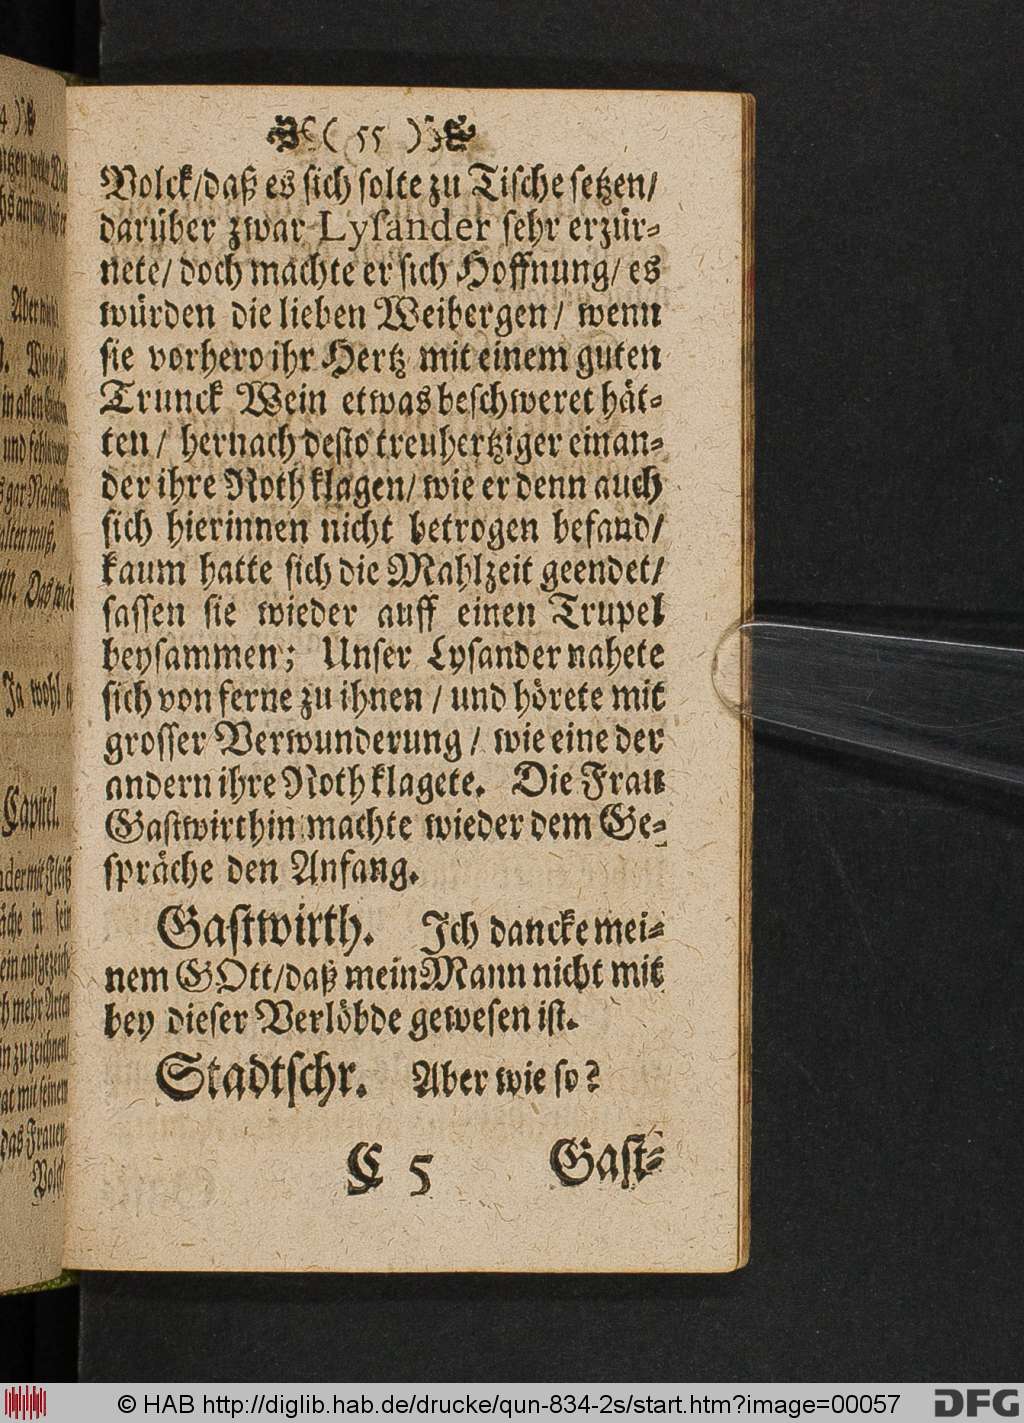 ( 55 )
Volck/daß es sich solte zu Tische setzen/
darüber zwar Lysander sehr erzür-
nete/ doch machte er sich Hoffnung/ es
würden die lieben Weibergen/ wenn
sie vorhero ihr Hertz mit einem guten
Trunck Wein etwas beschweret hät-
ten/ hernach desto treuhertziger einan-
der ihre Noth klagen/ wie er denn auch
sich hierinnen nicht betrogen befand/
kaum hatte sich die Mahlzeit geendet/
sassen sie wieder auff einen Trupel
beysammen; Unser Lysander nahete
sich von ferne zu ihnen / und hörete mit
grosser Verwunderung / wie eine der
andern ihre Noth klagete. Die Frau
Gastwirthin machte wieder dem Ge-
spräche den Anfang.
Gastwirth. Ich dancke mei-
nem GOtt/daß mein Mann nicht mit
bey dieser Verlöbde gewesen ist.
Stadtschr. Aber wie so?
C 5 Gast-
© HAB http://diglib.hab.de/drucke/qun-834-2s/start.htm?image=00057
DFG